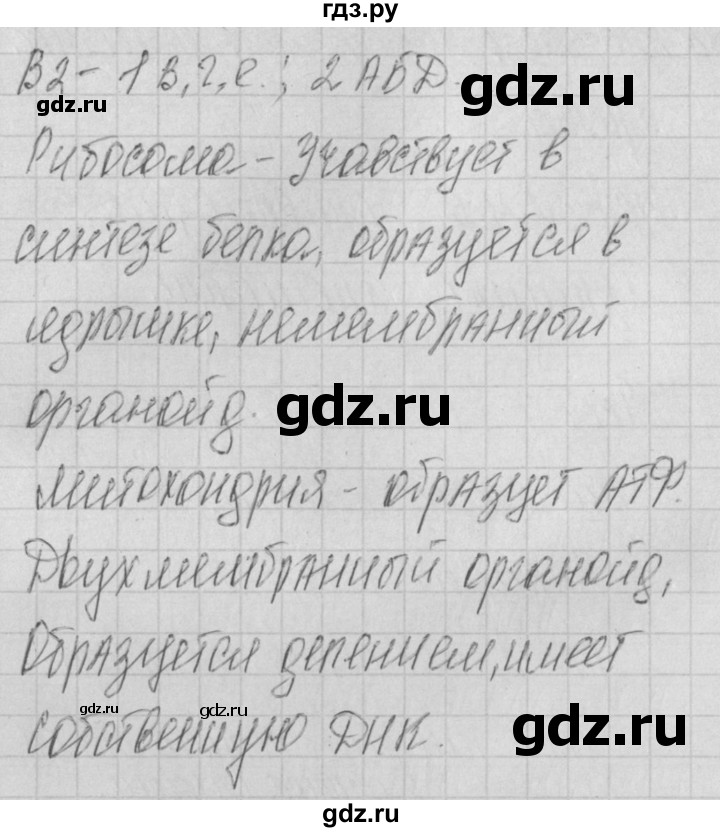 гдз.ру
В2 - 1 В, Г, Е.; 2 АБД.
gdz.ru
gdz.ru
Рибосома - Учавствует в
синтезе белка, образуется в
ядрышке, немембранный
органойд.
gdz.ru
митохондрия - образует АТФ.
Двухмембранный органойд,
Образуется делением, имеет
gdz.ru
gdz.ru
gdz.ru
собственную ДНК.
gdz.ru